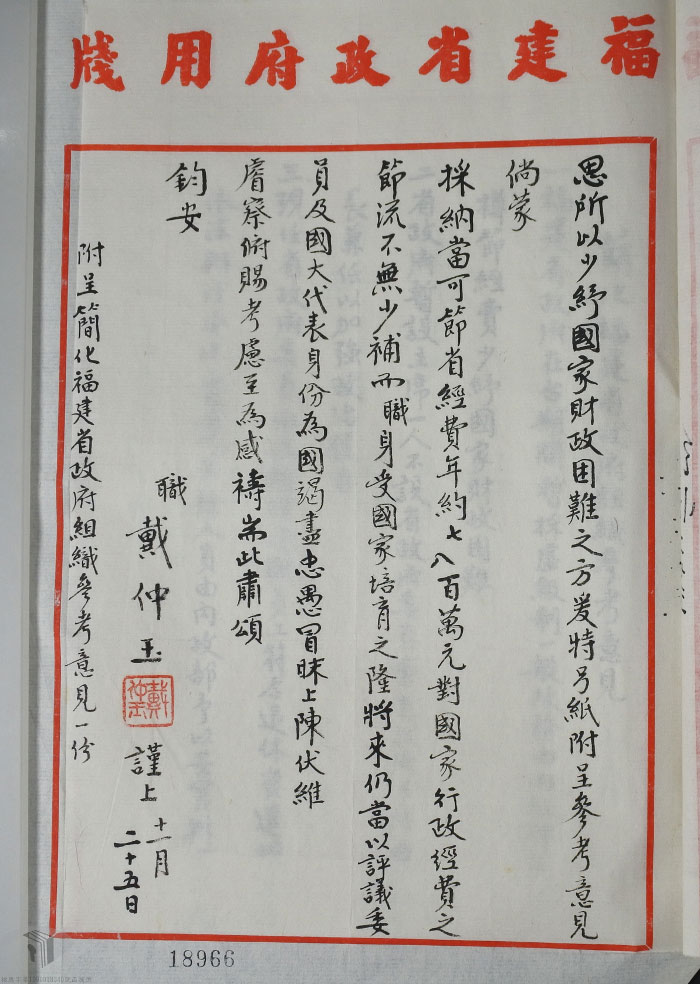 福建省政府用牋
思所以少紓國家財政困難之方爰特另紙附呈參考意見
倘蒙
採納當可節省經費年約七八百萬元對國家行政經費之
節流不無少補而職身受國家培育之隆將來仍當以評議委
員及國大代表身份為國竭盡忠愚冒昧上陳伏維
睿察俯賜考慮至為感禱耑此肅頌
鈞安
職戴仲玉
戴仲玉
謹上十一月
二十五日
附呈簡化福建省政府組織參考意見一份
18966